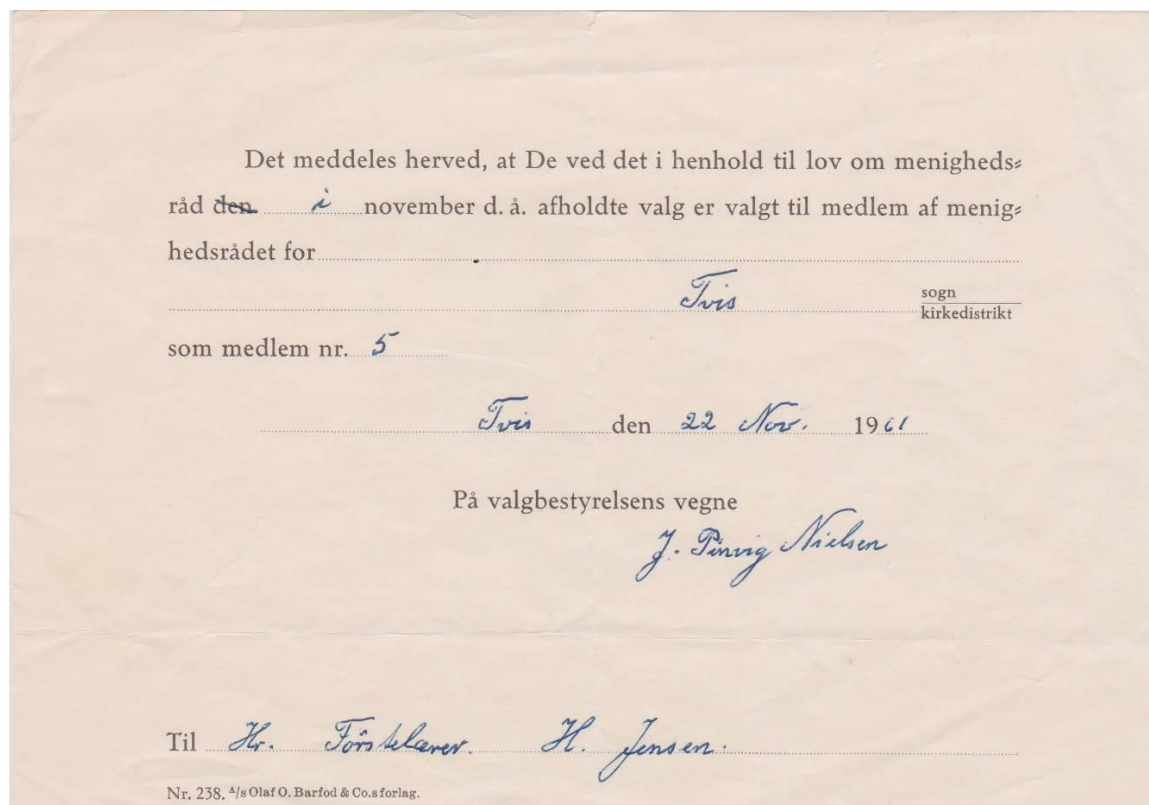 Det meddeles herved, at De ved det i henhold til lov om menigheds-
råd den i november d. å. afholdte valg er valgt til medlem af menig-
hedsrådet for
Tvis sogn
kirkedistrikt
som medlem nr. 5
Tvis den 22 Nov. 1961
På valgbestyrelsens vegne
J. Pinvig Nielsen
Til Hr. Förstelærer. H. Jensen.
Nr. 238. A/s Olaf O. Barfod & Co.s forlag.